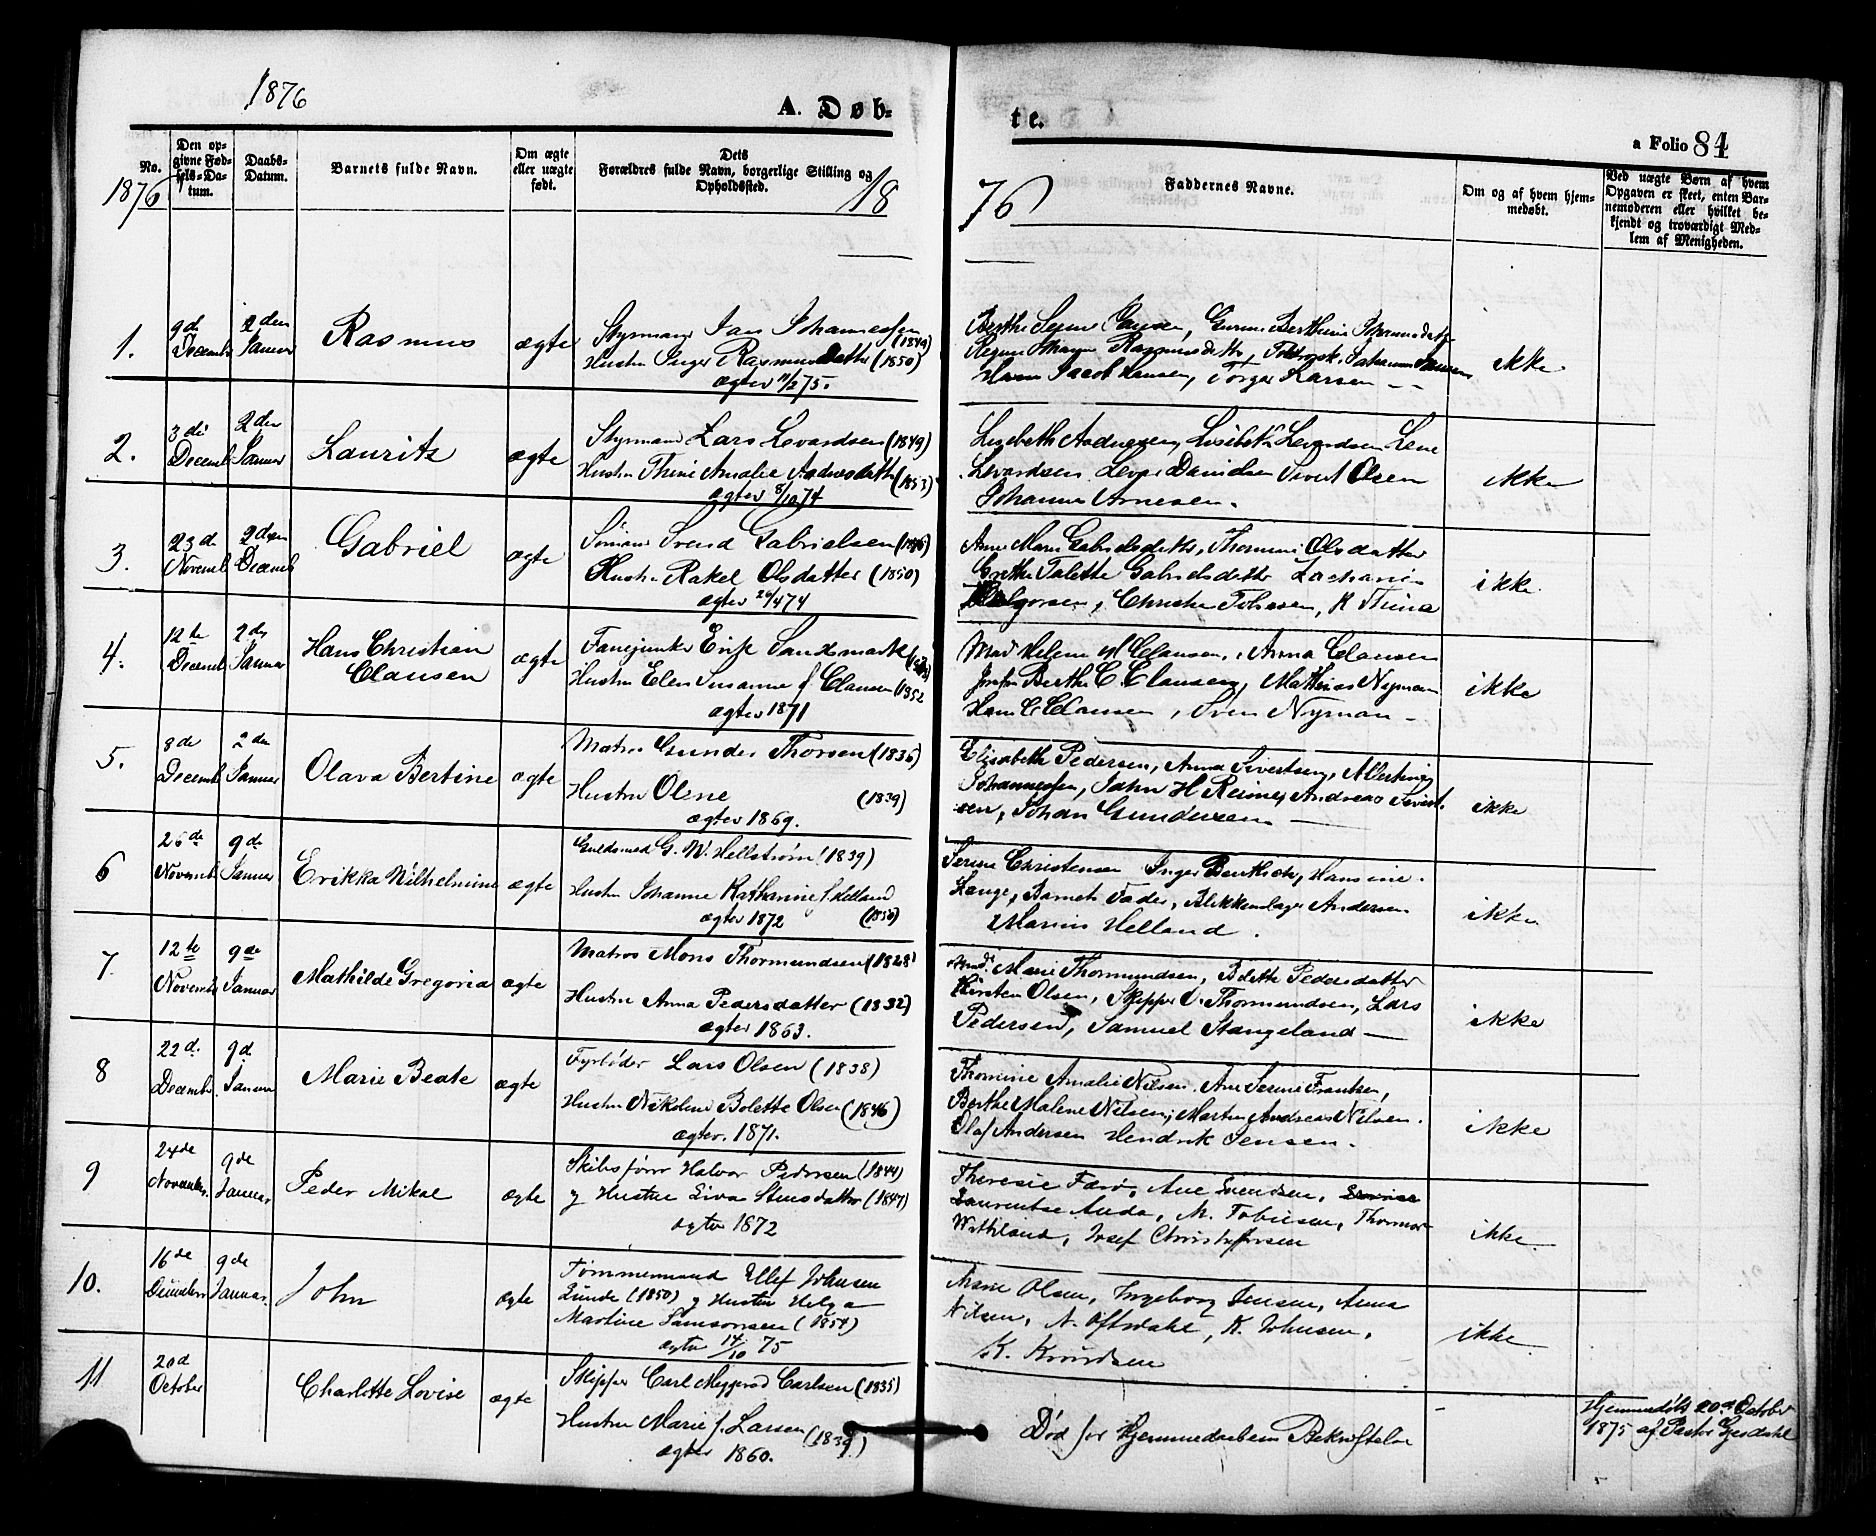 1876
A. Døb-
te.
a Folio 84
No.
Den op-
givne Fød-
sels-Da-
tum.
Daabs-
Datum.
Barnets fulde Navn.
Om ægte
eller uægte
født.
Dets
Forældres fulde Navn, borgerlige Stilling og
Opholdssted.
Faddernes Navne.
Om og af hvem hjem-
medøbt.
Ved uægte Børn af hvem
Opgaven er skeet, enten Bar-
nemoderen eller hvilket be-
kjendt og troværdigt Med-
lem af Menigheden.
1876
18
76
1.
9de
Decemb
2den
Januar
Rasmus
ægte
Styrmand Jans Johannesen
(1849)
Hustru Inger Rasmusdatter (1850)
ægtev 11/2 75.
Johannesdatter
Rasmusdatter,
Jacob Hansen, Torger Larsen
ikke
2.
3die
Decemb
2den
Januar
Lauritz
ægte
Styrmand Lars Levardsen (1849)
Hustru Thine Amalie Aadnesdatter
(1853)
ægtev 8/10 74
Lisebeth Aadnesen, Lisibeth Levardsen Lene
Levardsen Davidsen Sivert Olsen
Johannes Arnesen.
ikke
3.
23de
Novemb
Decemb
Gabriel
ægte
Sømand Svend Gabrielsen
Hustru Rakel Olsdatter (1850)
ægtev 26/4 74
Anne Marie Gabrielsdatter, Thomine Olsdatter
Grethe Talette Gabrielsdatter Zacharias
Christen Tobiesen,
ikke.
4.
12te
Decemb
2den
Januar
Hans Christian
Clausen
ægte
Fanejunker Erik Sandmark
Hustru Elen Susanne f Clausen (1852
ægtev 1871
Mad Helene Clausen, Anna Clausen
Jomfru Berthe C. Clausen, Mathias Nyman
Hans C Clausen, Sven Nyman
ikke
5.
8de
Decemb
2den
Januar
Olava Bertine
ægte
Matros Gunder Thorsen (1836)
Hustru Oline
(1839)
ægtev 1869.
Elisabeth Pedersen, Anna Sivertsen, Albertine
Johannesen, John H Reime, Andreas Sivert-
sen, Johan Gundersen
ikke
6
26de
Novemb
9de
Januar
Erikka Wilhelmine
ægte
Guldsmed G. W. Hellstrøm (1839)
Hustru Johanne Kathrine f. Helland
ægtev 1872
(1850)
Serine Christensen Inger Hansine
Lange, Barnets Fader, Blikkenslager Andersen
Marius Helland.
ikke
7.
12te
Novemb
9de
Januar
Mathilde Gregoria
ægte
Matros Mons Thormundsen (1828)
Hustru Anna Pedersdatter (1832)
ægtev 1863.
Mad. Marie Thormundsen, Bolette Pedersdatter
Kirsten Olsen, Skipper O. Thormundsen, Lars
Pedersen, Samuel Stangeland
ikke
8
22d.
Decemb.
9d.
Januar
Marie Beate
ægte
Fyrbøder Lars Olsen (1838)
Hustru Nikoline Bolette Olsen (1846)
ægtev. 1871.
Thomine Amalie Nilsen. Ane Serine Frantsen,
Berthe Malene Nilsen, Morten Andreas Nilsen.
Olaf Andersen Hendrik Jensen.
ikke
9
24de
November.
9de
Januar
Peder Mikal
ægte
Skibsfører Halvor Pedersen (1844)
og Hustru Siva Stensdatter (1847)
ægtev 1872
Theresie Farø, Ane Svendsen,
Laurentse Auda, M. Tobiesen, Thomas
Josef Christophersen
ikke.
10.
16de
December
9de
Januar.
John
ægte
Tømmermand Ellef Johnsen
Lunde (1850) og Hustru Helga
Martine Samsonsen (1854)
ægtev 14/10 75
Marie Olsen, Ingeborg Jensen, Anna
Nilsen, N. Oftedahl, K. Johnsen,
K. Knudsen
ikke.
11
20d
October
Charlotte Lovise
ægte
Skipper Carl Meyerod Carlsen (1835)
Hustru Marie f. Larsen
(1839.)
ægtev 1860.
Død før Hjemmedaabens Bekræftelse
Hjemmedøbt 20de October
1875 af Pastor Gjesdahl